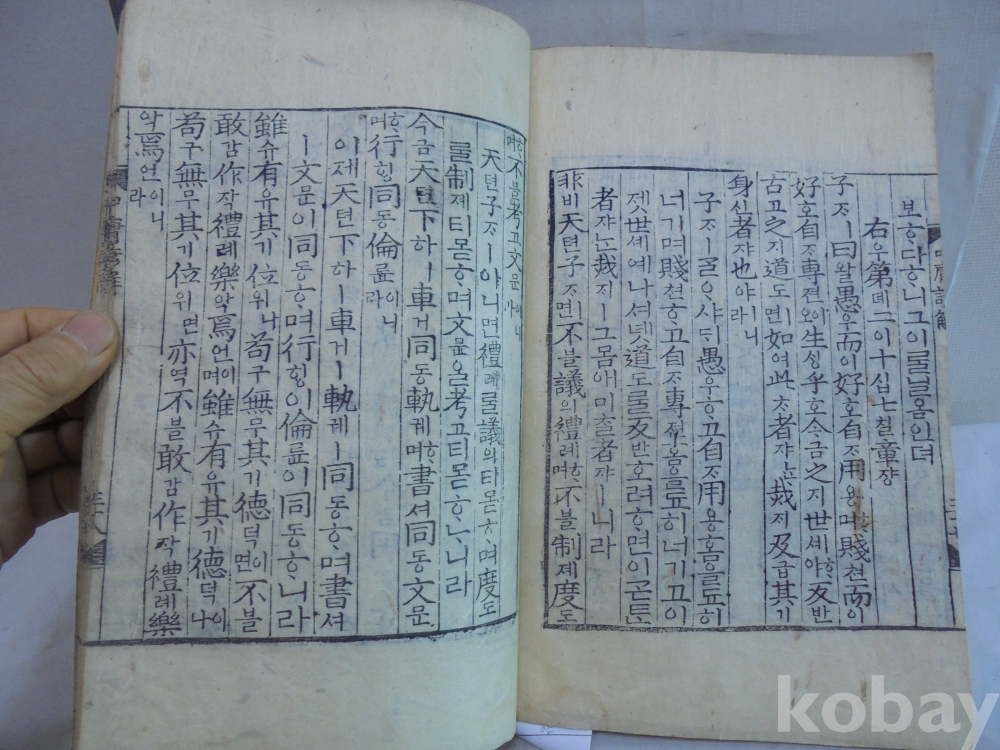 보ᄒᆞ다ᄒᆞ니그이ᄅᆞᆯ닐옴인뎌
右우第뎨二이十십七칠章쟝
子ᄌᆞㅣ曰왈愚우而이好호自ᄌᆞ用용ᄒᆞ며賤쳔而이
好호自ᄌᆞ專젼이오生ᄉᆡᆼ乎호今금之지世셰ᄒᆞ야反반
古고之지道도ㅣ면如여此ᄎᆞ者쟈ᄂᆞᆫ烖ᄌᆡ及급其기
身신者쟈也야ㅣ니라
子ᄌᆞㅣᄀᆞᆯᄋᆞ샤ᄃᆡ愚우ᄒᆞ고自ᄌᆞ用용홈을됴히
너기며賤쳔ᄒᆞ고自ᄌᆞ專젼홈을됴히너기고이
젯世셰예나셔녯道도ᄅᆞᆯ反반호려ᄒᆞ면이ᄀᆞᄐᆞᆫ
者쟈ᄂᆞᆫ烖ᄌᆡㅣ그몸애미츨者쟈ㅣ니라
非비天텬子ᄌᆞㅣ면不블議의禮례ᄒᆞ며不블制졔度도
ᄒᆞ며不블考고文문이니라
天텬子ᄌᆞㅣ아니면禮례ᄅᆞᆯ議의티몯ᄒᆞ며度도
ᄅᆞᆯ制졔티몯ᄒᆞ며文문을考고티몯ᄒᆞᄂᆞ니라
今금天텬下하ㅣ車거同동軌궤ᄒᆞ며書셔同동文문
ᄒᆞ며行ᄒᆡᆼ同동倫륜이니라
이제天텬下하ㅣ車거ㅣ軌궤ㅣ同동ᄒᆞ며書셔
ㅣ文문이同동ᄒᆞ며行ᄒᆡᆼ이倫륜이同동ᄒᆞ니라
雖슈有유其기位위나苟구無무其기德덕이면不블
敢감作작禮례樂악焉언이며雖슈有유其기德덕이나
苟구無무其기位위면亦역不블敢감作작禮례樂
악焉언이니라
中庸諺解
kobay